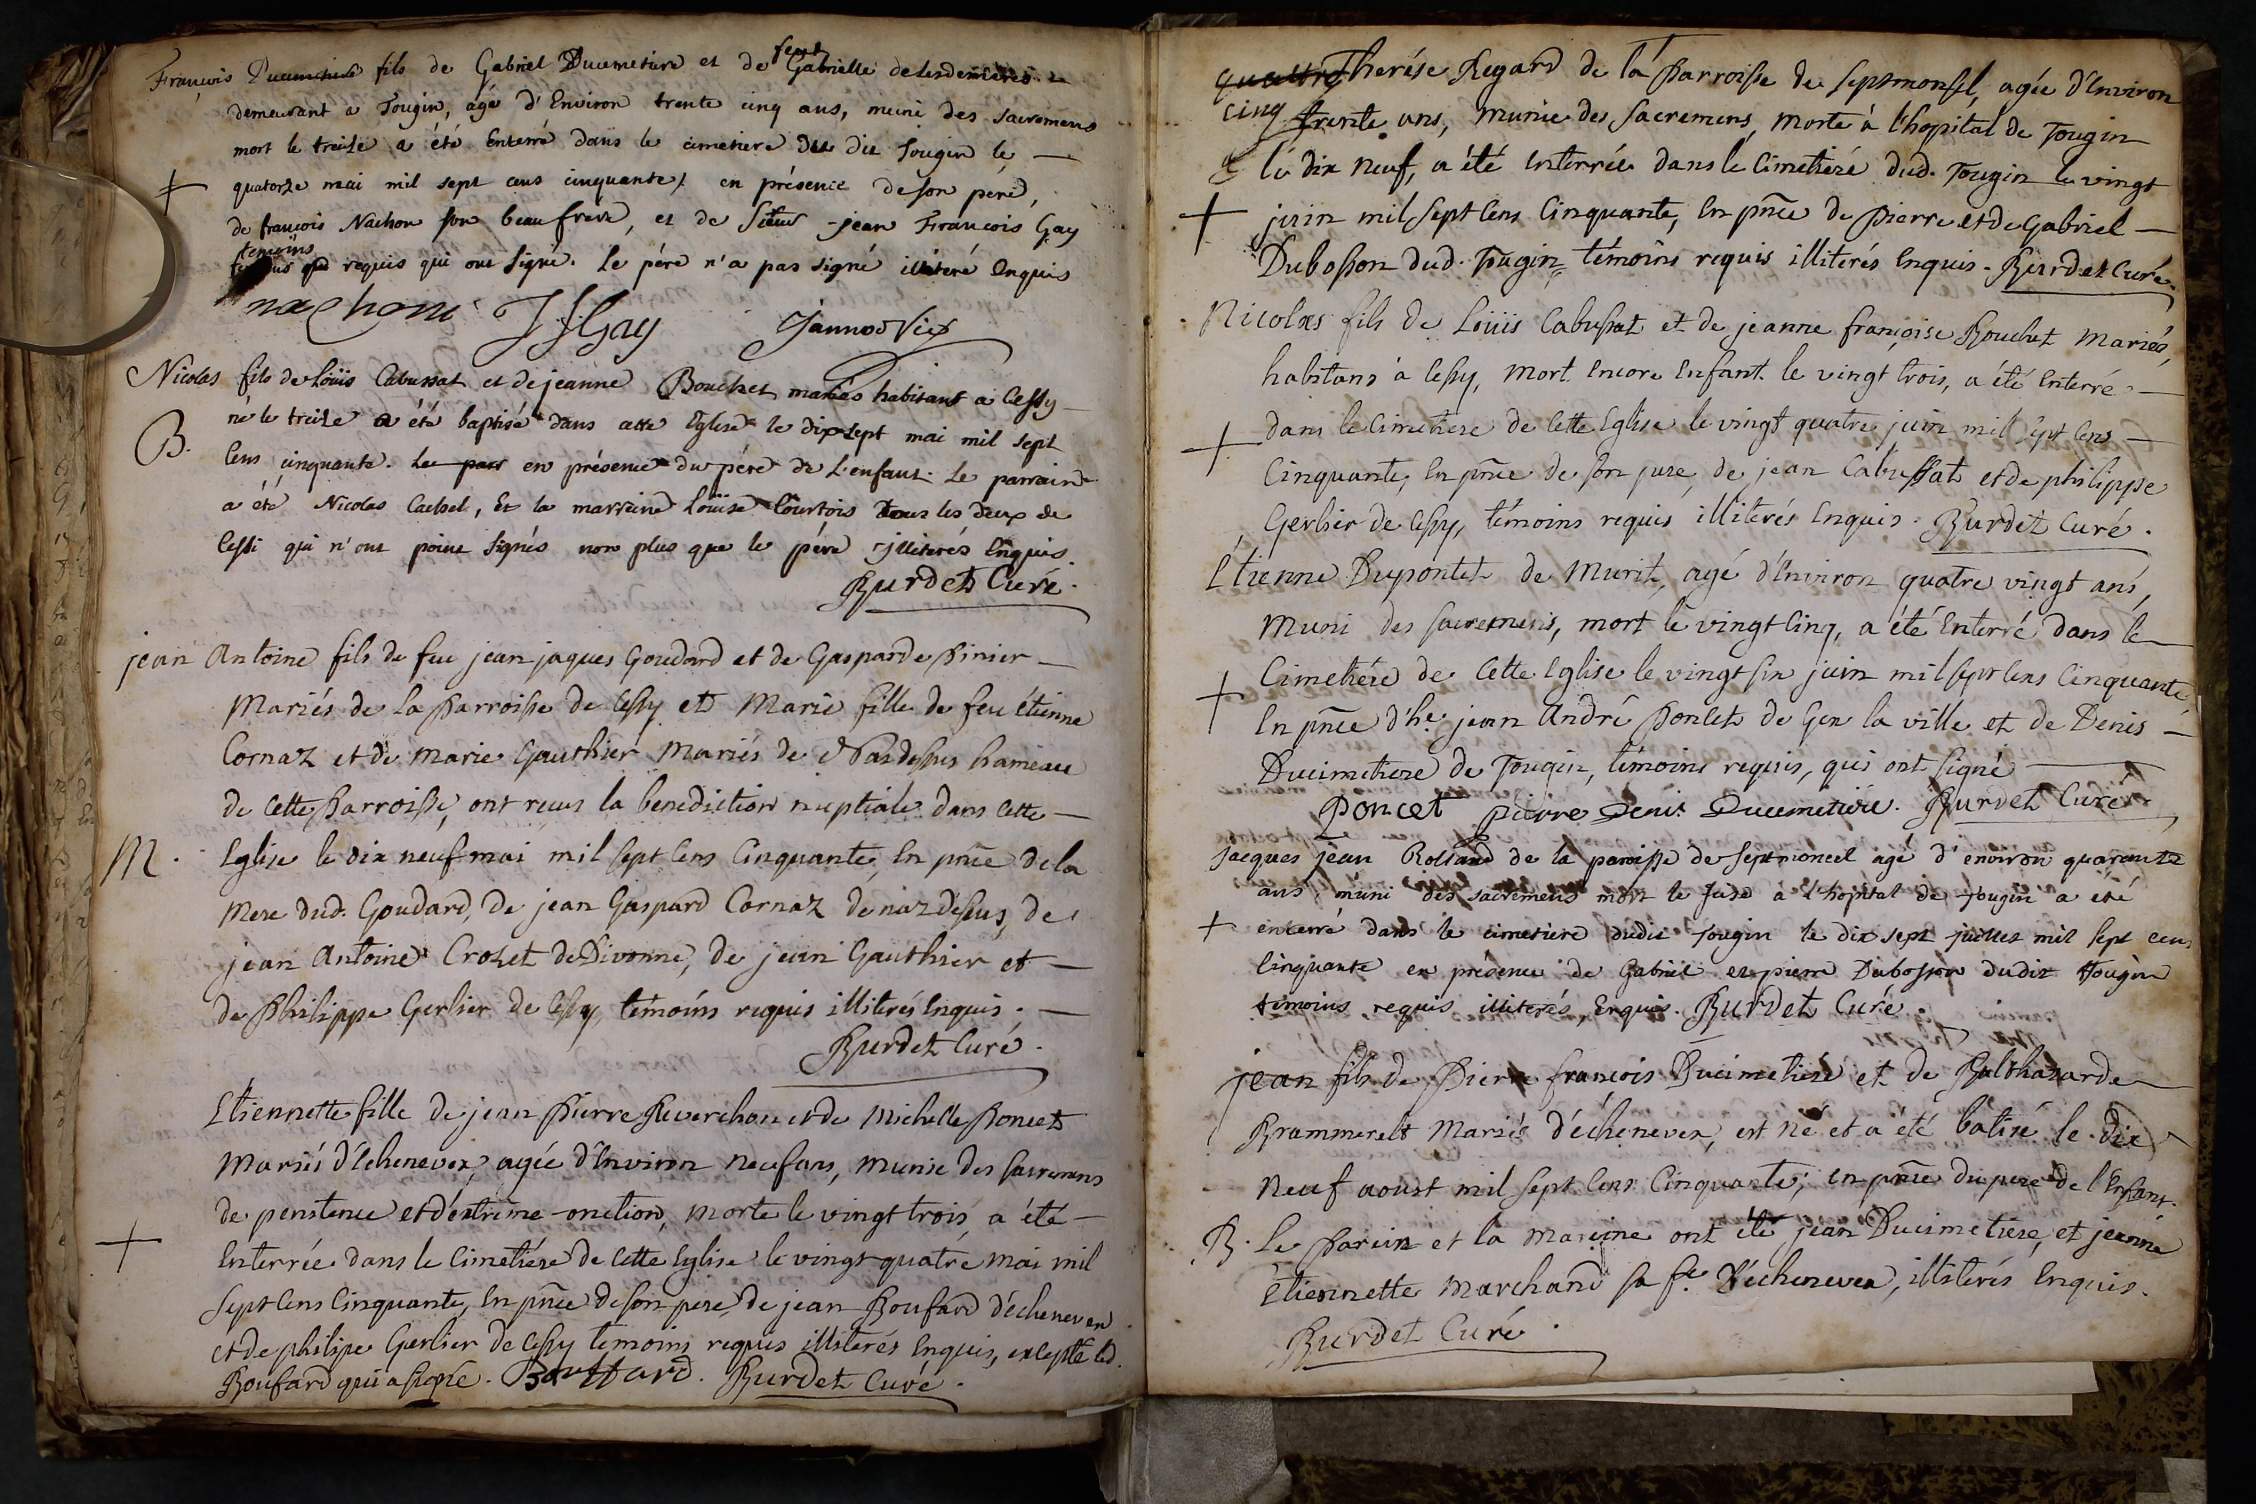 François Ducimetiere fils de Gabriel Ducimetiere et de feue Gabrielle
demeurant a Tougin, agé d'Environ trente cinq ans, muni des sacremens
mort le treize a été Enterré dans le cimetiere du dit Tougin le —
+ quatorze mai mil sept cens cinquante. en présence de son péré,
de françois Nachon son beau frere, et de Sieur jean François Gay
temoins requis qui ont signé. Le pére n'a pas signé illiteré Enquis
nachon JfGay
Nicolas fils de Loüis Cabussat et de jeanne Bouchet mariés habitant a Cessy —
né le treize a été baptisé dans cette Eglise le dix sept mai mil sept
B. Cens cinquante. Le parr en présence du pére de L'enfant. Le parrain
a été Nicolas Cachel, Et la marraine Loüise Courtois Tous les deux de
Cessi qui n'ont point signés non plus que le pére illiterés Enquis.
Burdet Curé.
jean Antoine fils de feu jean jaques Goudard et de Gasparde Pinier —
Mariés de la Parroisse de Cessy et Marie fille de feu étienne
Cornaz et de Marie Gauthier Mariés de Nazdessus hameau
de Cette Parroisse, ont reçus la benediction nuptiale dans Cette —
M. Eglise le dix neuf mai mil sept Cens Cinquante, En pnce de la
Mere dud. Goudard, de jean Gaspard Cornaz de nazdessus, de
jean Antoine Crozet de Divonne, de jean Gauthier et —
de Philippe Gerlier de Cessy, témoins requis illiterés Enquis. —
Burdet Curé.
Etiennette fille de jean Pierre Reverchon et de Michelle Poncet
Mariés d'Echenevex, agée d'Environ neuf ans, munie des sacremens
de penitence et d'éxtrême-onction, morte le vingt trois, a été —
+ Enterrée dans le Cimetiére de Cette Eglise le vingt quatre Mai mil
Sept Cens Cinquante, En pnce de son pere, de jean Boufard d'échenevex
et de philipe Gerlier de Cessy temoins requis illiterés Enquis, excepté led.
Boufard qui a signé. Bouffard. Burdet Curé.
quattre Therése Regard de la Parroisse de septmonsel, agée d'Environ
cinq trente ans, Munie des Sacremens, Morte à l'hopital de Tougin
le dix neuf, a été Enterrée dans le Cimetiéré dud. Tougin le vingt
+ juin mil sept Cens Cinquante, En pnce de Pierre et de Gabriel —
Dubosson dud. Tougin, témoins requis illiterés Enquis. Burdet Curé.
Nicolas fils de Loüis Cabussat et de jeanne françoise Bouchet Mariés,
habitans à Cessy, Mort Encore Enfant le vingt trois, a été Enterré —
+ dans le Cimetiere de Cette Eglise le vingt quatre juin mil sept Cens —
Cinquante, En pnce de son pere, de jean Cabussat et de philippe
Gerlier de Cessy, témoins requis illiterés Enquis. Burdet Curé.
Etienne Dupontet de Murit, agé d'Environ quatre vingt ans,
Muni des sacremens, mort le vingt Cinq, a été Enterré dans le
+ Cimetiére de Cette Eglise le vingt six juin mil sept Cens Cinquante,
En pnce d'he. jean André Poncet de Gex la ville et de Denis —
Ducimetiere de Tougin, témoins requis, qui ont signé —
Poncet pierre Denis Ducimetiére. Burdet Curé
Jacques jean Rolland de la paroisse de Septmoncel agé d'environ quarante
ans muni des sacremens mort le seize à l'hopital de Tougin a eté
+ enterré dans le cimetiere dudit Tougin le dix sept juillet mil sept cens
Cinquante en présence de Gabriel et pierre Dubosson dudit Tougin
témoins requis illiterés, Enquis. Burdet Curé.
jean fils de Pierre françois Ducimetiere et de Balthazarde
Brammerelt Mariés d'échenevex, est né et a été batisé le dix
Neuf aoust mil sept Cens Cinquante, en pnce du pere de l'Enfant.
B. Le Parein et la Mareine ont été jean Ducimetiere, et jeanne
Etiennette Marchand sa fe. d'échenevex, illiterés Enquis.
Burdet Curé.